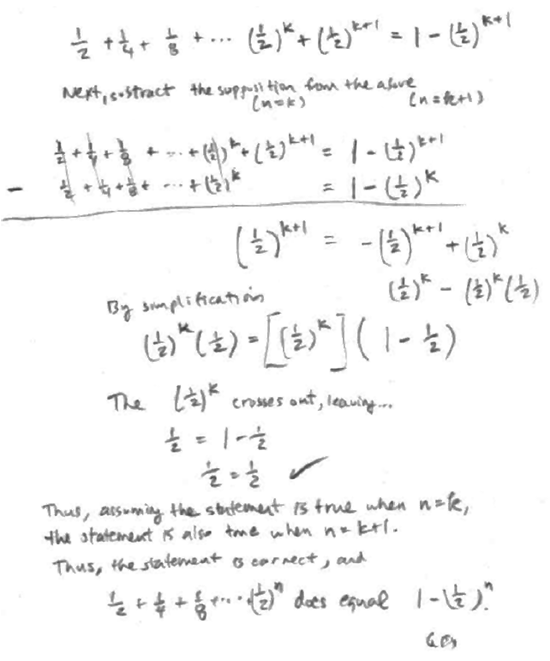 1/2 + 1/4 + 1/8 + ... (1/2)^k + (1/2)^(k+1) = 1 - (1/2)^(k+1)
Next, subtract the supposition from the above
(n=k) (n=k+1)
1/2 + 1/4 + 1/8 + ... + (1/2)^k + (1/2)^(k+1) = 1 - (1/2)^(k+1)
- 1/2 + 1/4 + 1/8 + ... + (1/2)^k = 1 - (1/2)^k
(1/2)^(k+1) = -(1/2)^(k+1) + (1/2)^k
(1/2)^k - (1/2)^k (1/2)
By simplification
(1/2)^k (1/2) = [(1/2)^k] (1 - 1/2)
The (1/2)^k crosses out, leaving...
1/2 = 1 - 1/2
1/2 = 1/2 ✓
Thus, assuming the statement is true when n=k,
the statement is also true when n=k+1.
Thus, the statement is correct, and
1/2 + 1/4 + 1/8 + ... (1/2)^n does equal 1 - (1/2)^n.